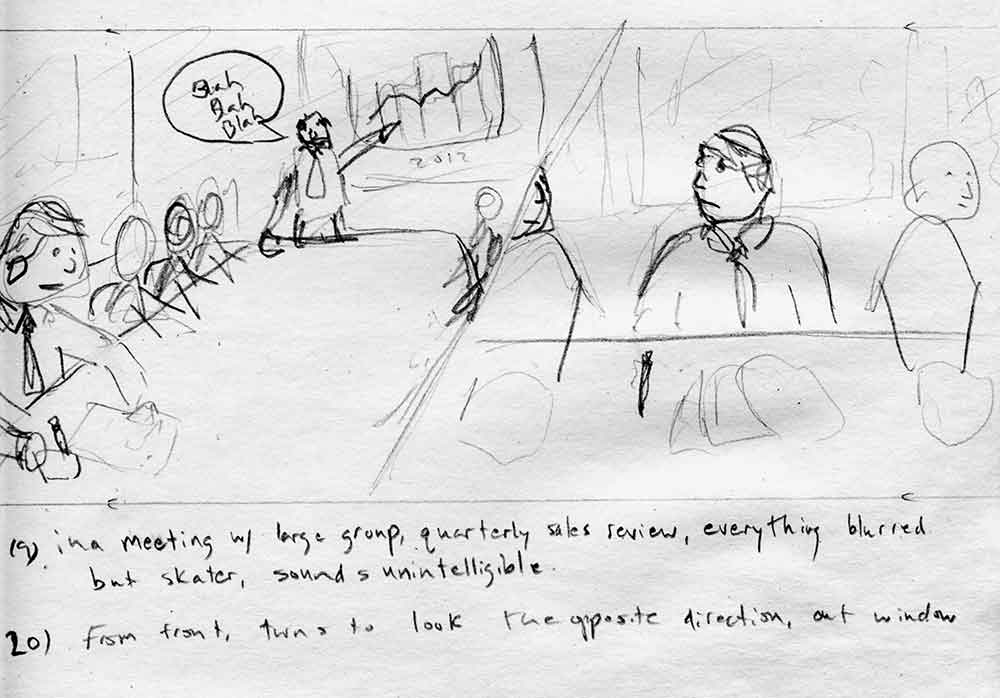 Blah
Blah
Blah
2012
19) in a meeting w/ large group, quarterly sales review, everything blurred
but skater, sounds unintelligible.
20) From front, turns to look the opposite direction, out window